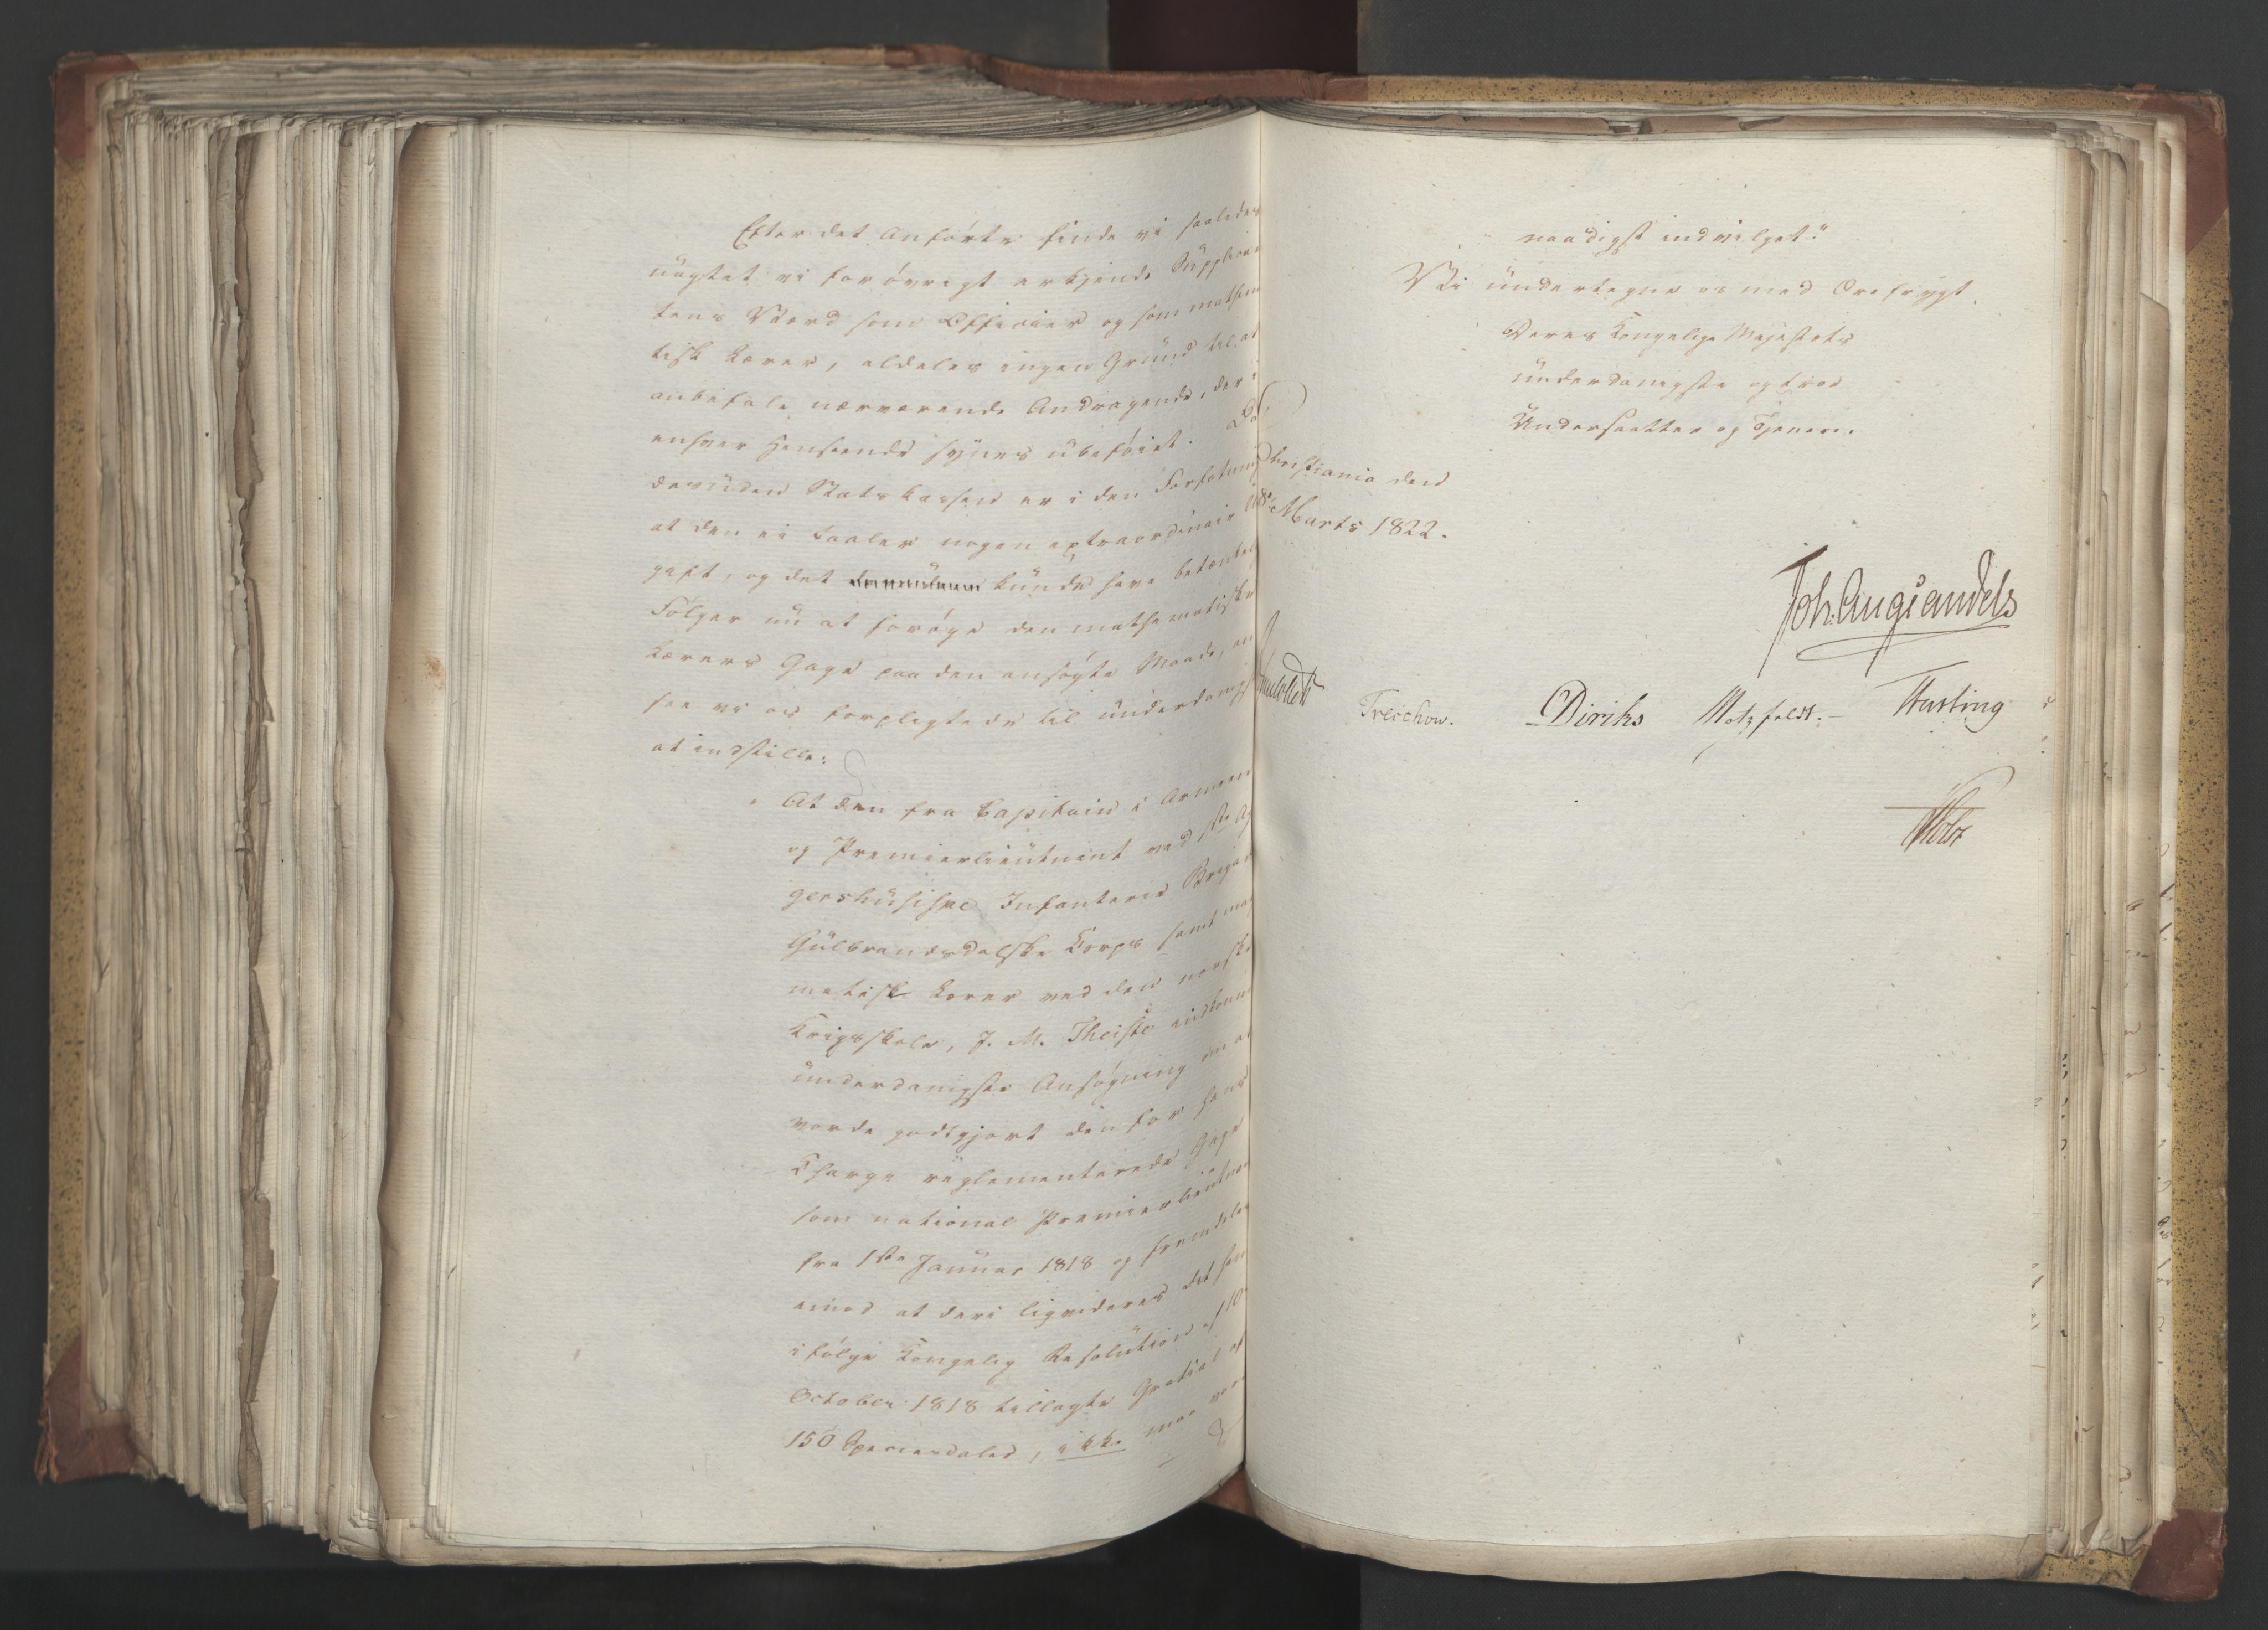 Efter det Anførte finde vi saaledes
uagtet vi forøvrigt erkjende Supplican
tens Værd som Officier og som mathema
tisk Lærer, aldeles ingen Grund til at
anbefale nærværende Andragende, der i
enhver Henseende synes ubeføiet. Da
desuden Statskassen er i den Forfatning
at den ei taaler nogen extraordinair Ud
gift, og det kunde have betænkelige
Følger nu at forøge den mathematiske
Lærers Gage paa den ansøgte Maade, an
see vi os forpligtede til underdanigst
at indstille:
"At den fra Capitain i Armeen
og Premierlieutnant ved 1ste Ag
gershusiske Infanterie Brigade
Gulbrandsdalske Corps samt mathe
matisk Lærer ved den norske
Krigsskole, J. M. Theiste indkomne
underdanigste Ansøgning om at
vorde godtgjort den for hans
Charge reglementerede Gage
som national Premierlieutnant
fra 1ste Januar 1818 og fremdeles
imod at deri liqvideres det ham
ifølge Kongelig Resolution af 10
October 1818 tillagte Gratial af
150 Speciesdaler, ikke maa være
naadigst indvilget."
Vi undertegne os med Ærefrygt
Deres Kongelige Majestæts
underdanigste og troe
Undersaatter og Tjenere.
Christiania den
8de Marts 1822.
Joh. Aug. Sandels
Treschow. Diriks Motzfeldt. Fasting
Holst